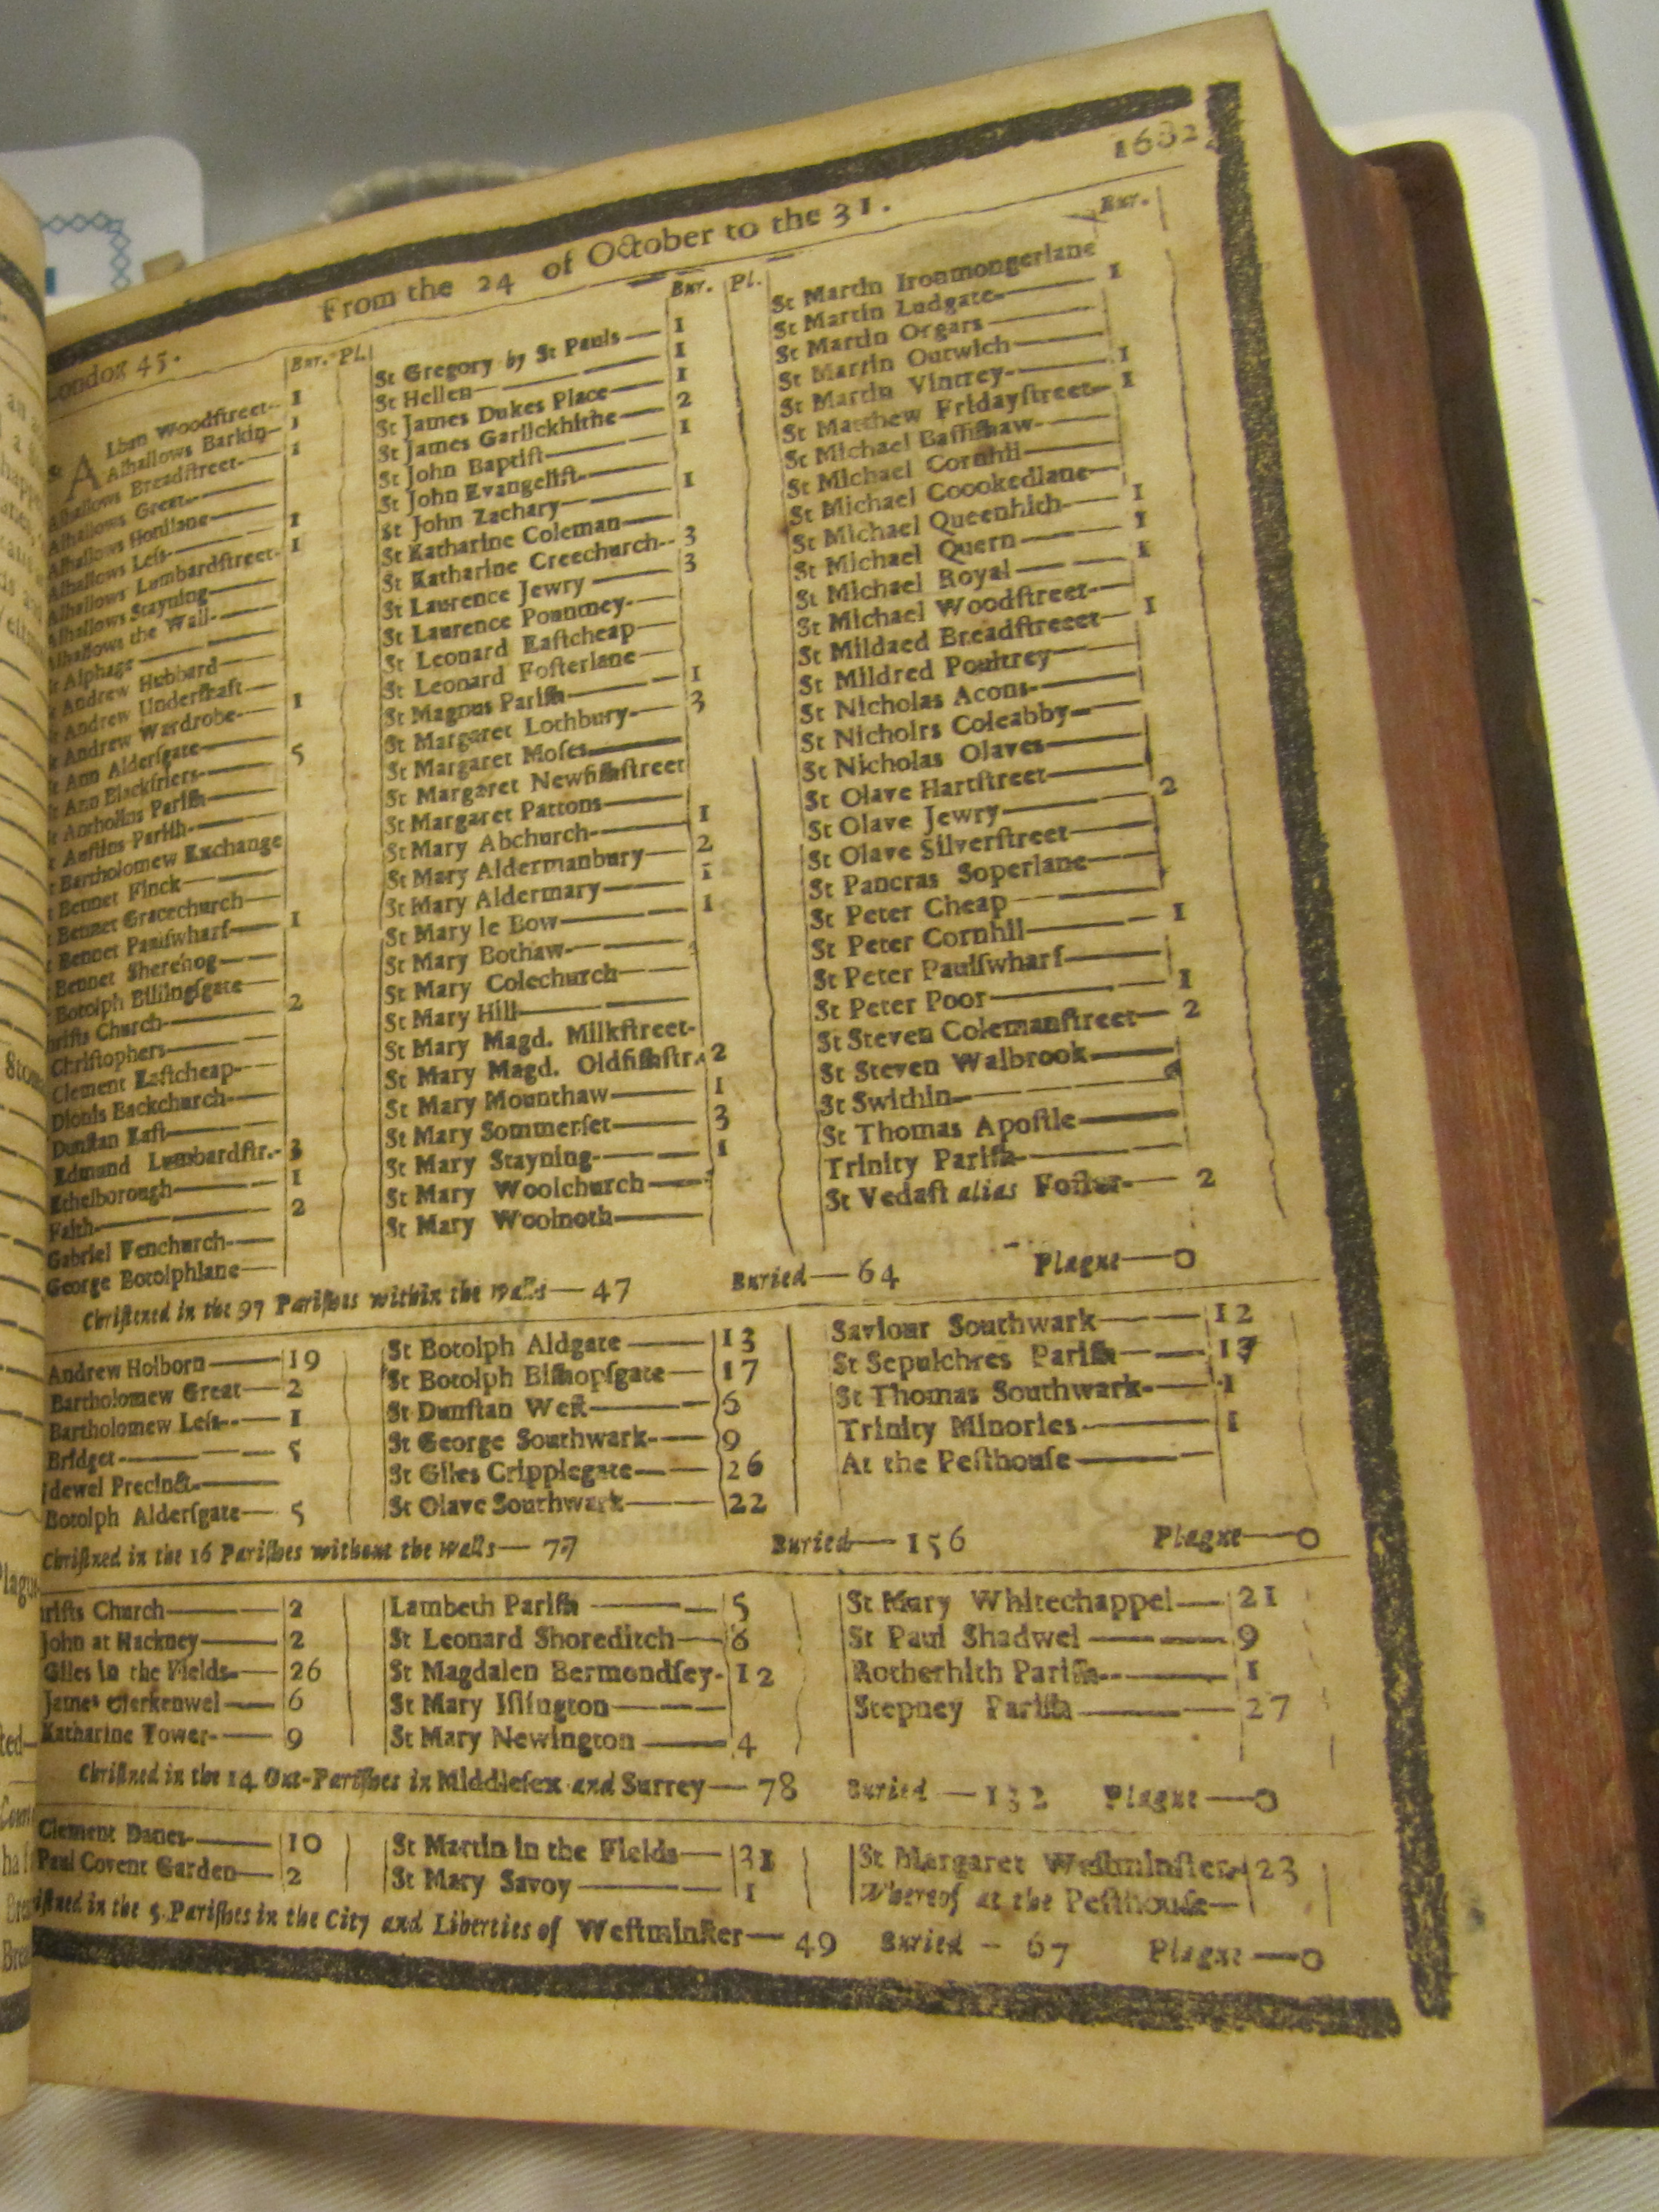 From the 24 of October to the 31. 1682
London 45.
Bur. Pl.
Alban Woodſtreet-- 1
Alhallows Barkin— 1
Alhallows Breadſtreet-— 1
Alhallows Great-—
Alhallows Honilane——
Alhallows Leſs-— 1
Alhallows Lumbardſtreet- 1
Alhallows Stayning——
Alhallows the Wall-—
St Alphage — —
St Andrew Hubbard —
St Andrew Underſhaft —
St Andrew Wardrobe-— 1
St Ann Alderſgate——
St Ann Blackfriers-— 5
St Antholins Pariſh——
St Auſtins Pariſh-—
St Bartholomew Exchange
St Bennet Finck——
St Bennet Gracechurch—
St Bennet Paulſwharf— 1
St Bennet Sherehog——
St Botolph Billingſgate
Chriſts Church—— 2
Chriſtophers——
Clement Eaſtcheap-—
Dionis Backchurch-—
Dunſtan Eaſt——
Edmund Lumbardſtr.- 3
Ethelborough—— 1
Faith—— 2
Gabriel Fenchurch-—
George Botolphlane—
Bur. Pl.
St Gregory by St Pauls — 1
St Hellen— — — 1
St James Dukes Place— 1
St James Garlickhithe— 2
St John Baptiſt—— 1
St John Evangeliſt-—
St John Zachary—— 1
St Katharine Coleman—
St Katharine Creechurch-- 3
St Laurence Jewry —— 3
St Laurence Pountney-—
St Leonard Eaſtcheap —
St Leonard Foſterlane —
St Magnus Pariſh—— 1
St Margaret Lothbury-— 3
St Margaret Moſes——
St Margaret Newfiſhſtreet
St Margaret Pattons——
St Mary Abchurch-— 1
St Mary Aldermanbury— 2
St Mary Aldermary—— 1
St Mary le Bow—— 1
St Mary Bothaw-—
St Mary Colechurch——
St Mary Hill——
St Mary Magd. Milkſtreet-
St Mary Magd. Oldfiſhſtr. 2
St Mary Mounthaw—— 1
St Mary Sommerſet—— 3
St Mary Stayning-—— 1
St Mary Woolchurch ——
St Mary Woolnoth——
Bur.
St Martin Ironmongerlane
St Martin Ludgate-— 1
St Martin Orgars ——
St Martin Outwich——
St Martin Vintrey-— 1
St Matthew Fridayſtreet- 1
St Michael Baſſiſhaw-—
St Michael Cornhil——
St Michael Coookedlane—
St Michael Queenhith-— 1
St Michael Quern —— 1
St Michael Royal —— 1
St Michael Woodſtreet-—
St Mildaed Breadſtreeet— 1
St Mildred Poultrey——
St Nicholas Acons-—
St Nicholrs Coleabby——
St Nicholas Olaves——
St Olave Hartſtreet——
St Olave Jewry—— 2
St Olave Silverſtreet——
St Pancras Soperlane——
St Peter Cheap ——
St Peter Cornhil—— 1
St Peter Paulſwharf——
St Peter Poor—— 1
St Steven Colemanſtreet— 2
St Steven Walbrook——
St Swithin-——
St Thomas Apoſtle——
Trinity Pariſh-——
St Vedaſt alias Foſter-— 2
Chriſtened in the 97 Pariſhes within the walls— 47 Buried— 64 Plague—0
Andrew Holborn—— 19
Bartholomew Great— 2
Bartholomew Leſs-- — 1
Bridget-—— 5
Bridewel Precinct-——
Botolph Alderſgate— 5
St Botolph Aldgate —— 13
St Botolph Biſhopſgate— 17
St Dunſtan Weſt—— 6
St George Southwark-— 9
St Giles Cripplegate—— 26
St Olave Southwark—— 22
Saviour Southwark—— 12
St Sepulchres Pariſh—— 17
St Thomas Southwark-— 1
Trinity Minories —— 1
At the Peſthouſe——
Chriſtned in the 16 Pariſhes without the walls— 77 Buried— 156 Plague—0
Chriſts Church—— 2
John at Hackney—— 2
Giles in the Fields-— 26
James Clerkenwel — 6
Katharine Tower-— 9
Lambeth Pariſh —— 5
St Leonard Shoreditch— 6
St Magdalen Bermondſey- 12
St Mary Iſlington——
St Mary Newington —— 4
St Mary Whitechappel— 21
St Paul Shadwel —— 9
Rotherhith Pariſh-— 1
Stepney Pariſh —— 27
Chriſtned in the 14 Out-Pariſhes in Middleſex and Surrey— 78 Buried — 132 Plague—0
Clement Danes-—— 10
Paul Covent Garden— 2
St Martin in the Fields— 31
St Mary Savoy —— 1
St Margaret Weſtminſter- 23
Whereof at the Peſthouſe—
Chriſtned in the 5 Pariſhes in the City and Liberties of Weſtminſter— 49 Buried — 67 Plague—0